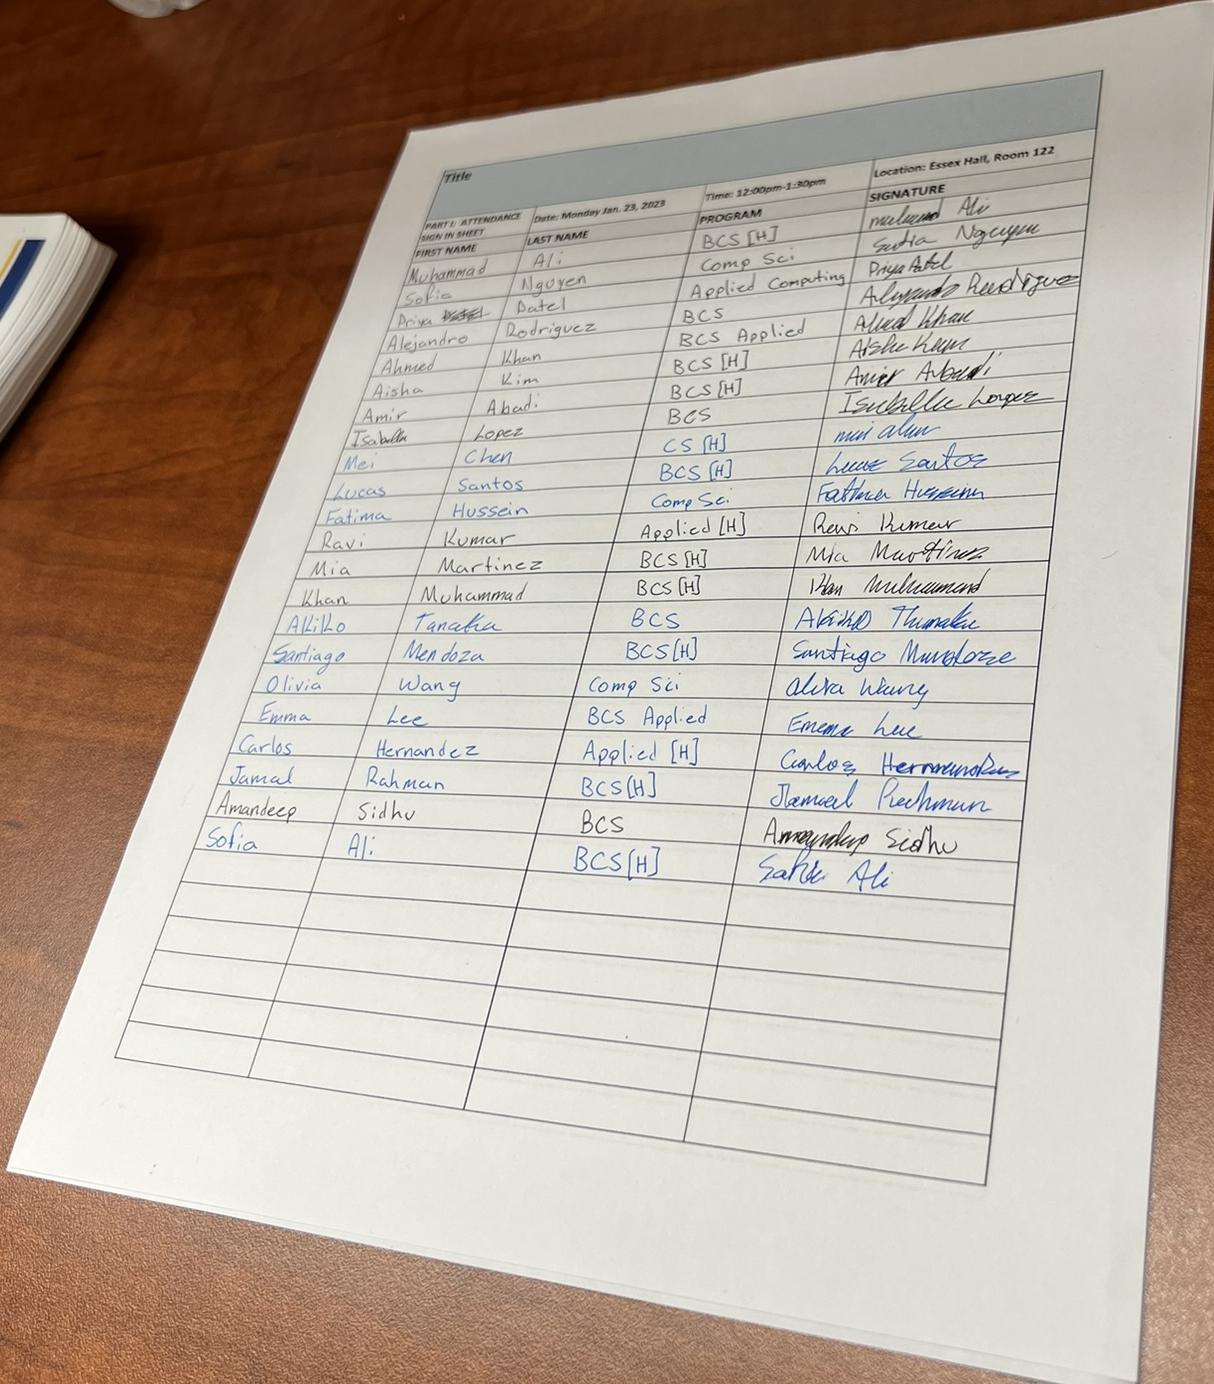 Title
PART I: ATTENDANCE SIGN IN SHEET Date: Monday Jan. 23, 2023 Time: 12:00pm-1:30pm Location: Essex Hall, Room 122
FIRST NAME LAST NAME PROGRAM SIGNATURE
Muhammad Ali BCS [H] Ali
Sofia Nguyen Comp Sci Sofia Nguyen
Priya Patel Applied Computing Priya Patel
Alejandro Rodriguez BCS Alejandro Rodriguez
Ahmed Khan BCS Applied Ahmed Khan
Aisha Kim BCS [H] Aisha
Amir Abadi BCS [H] Amir Abadi
Isabella Lopez BCS Isabella Lopez
Mei Chen CS [H]
Lucas Santos BCS [H] Lucas Santos
Fatima Hussein Comp Sci Fatima Hussein
Ravi Kumar Applied [H] Ravi Kumar
Mia Martinez BCS [H] Mia Martinez
Khan Muhammad BCS [H] Khan Muhammad
Akiko Tanaka BCS Akiko
Santiago Mendoza BCS [H] Santiago Mendoza
Olivia Wang Comp Sci Wang
Emma Lee BCS Applied Emma Lee
Carlos Hernandez Applied [H] Carlos Hernandez
Jamal Rahman BCS [H] Jamal Rahman
Amandeep Sidhu BCS Amandeep Sidhu
Sofia Ali BCS [H] Ali